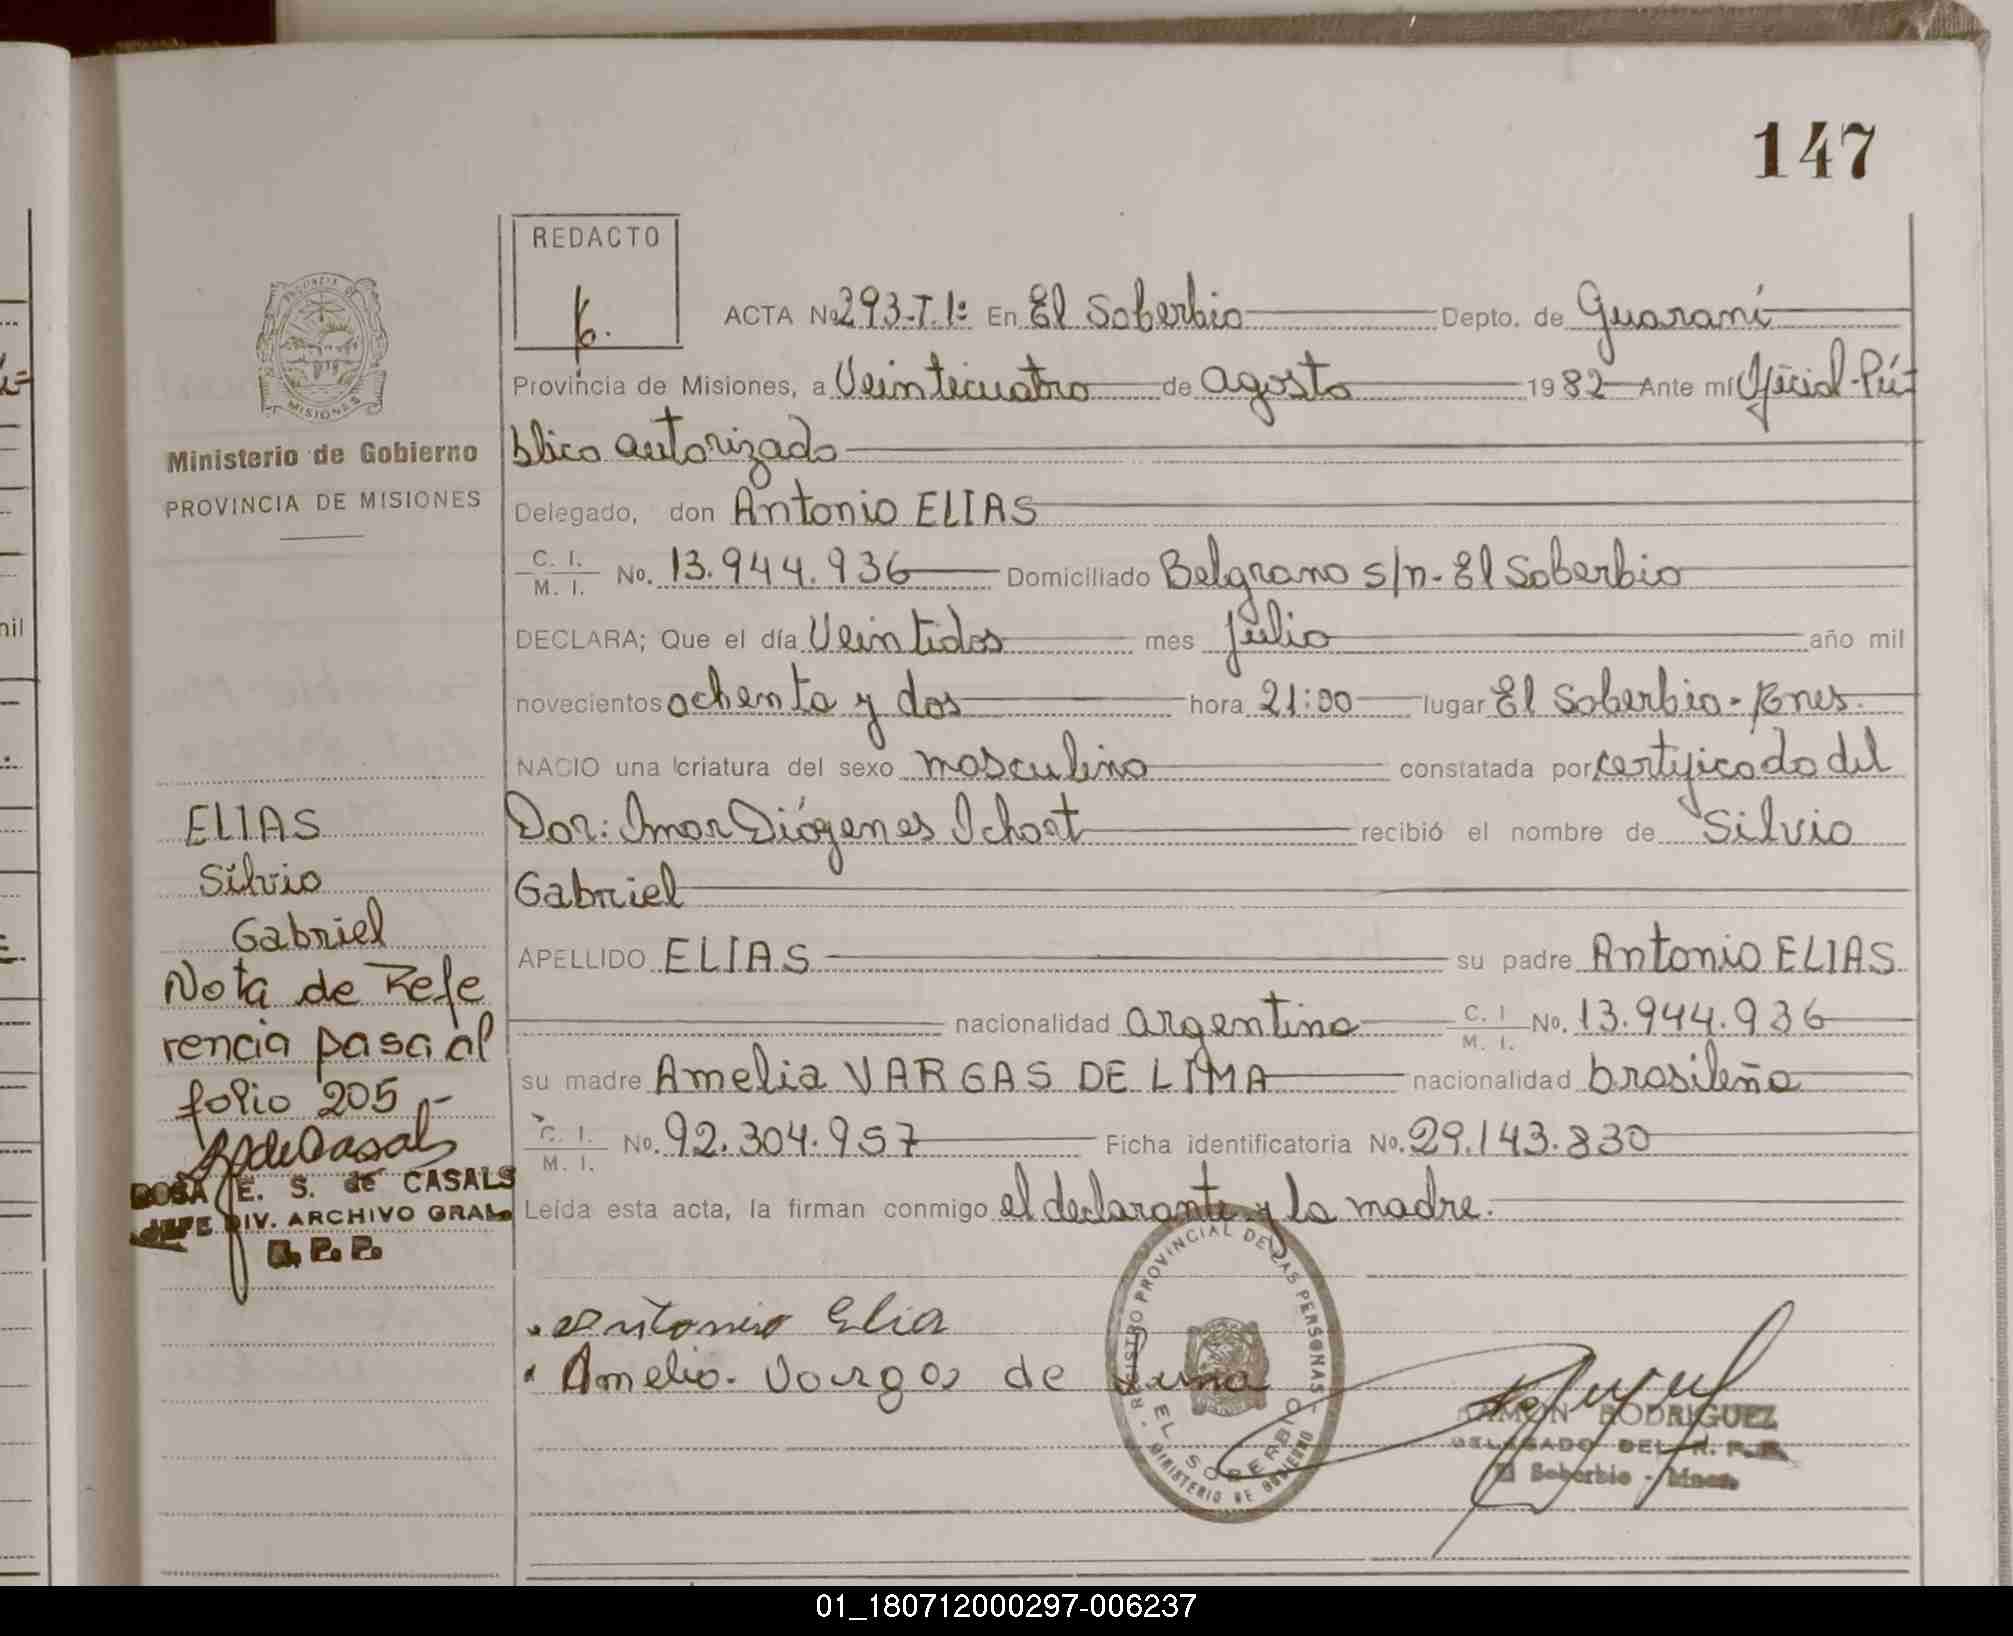 147
REDACTO
ACTA No 293-T.1º En El Soberbio Depto. de Guaraní
Provincia de Misiones, a Veinticuatro de agosto 1982 Ante mí Oficial Pú-
blico autorizado
Delegado, don Antonio ELIAS
C. I.
M. I. No. 13.944.936 Domiciliado Belgrano s/n - El Soberbio
DECLARA; Que el día Veintidos mes Julio año mil
novecientos ochenta y dos hora 21:00 lugar El Soberbio - Mnes.
NACIO una criatura del sexo masculino constatada por certificado del
Dor: Omar Diógenes Ichart recibió el nombre de Silvio
Gabriel
APELLIDO ELIAS su padre Antonio ELIAS
nacionalidad argentina C. I.
M. I. No. 13.944.936
su madre Amelia VARGAS DE LIMA nacionalidad brasileña
C. I.
M. I. No. 92.304.957 Ficha identificatoria No. 29.143.830
Leída esta acta, la firman conmigo el declarante y la madre.
Antonio Elia
Amelia Vargas de Lima
REGISTRO PROVINCIAL DE LAS PERSONAS
EL SOBERBIO
MINISTERIO DE GOBIERNO
RAMON RODRIGUEZ
DELEGADO DEL R. P. P.
El Soberbio - Mnes.
MISIONES
Ministerio de Gobierno
PROVINCIA DE MISIONES
ELIAS
Silvio
Gabriel
Nota de Refe
rencia pasa al
folio 205.-
ROSA E. S. de CASALS
JEFE DIV. ARCHIVO GRAL.
R. P. P.
nil
01_180712000297-006237